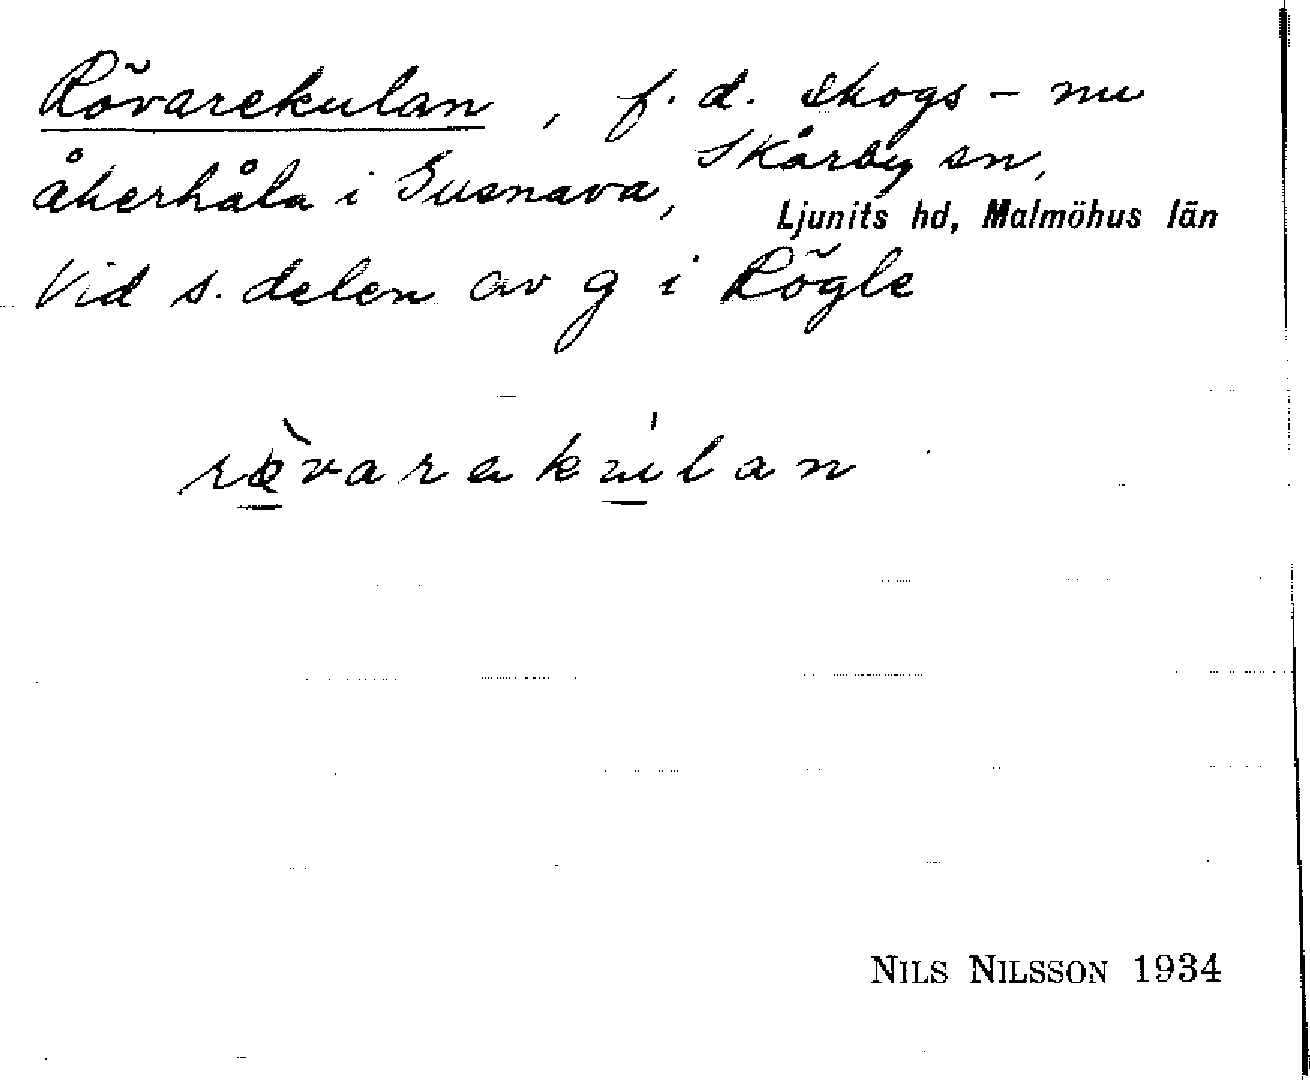 Rövarekulan, f. d. skogs- nu
åkerhåla i Gusnava, Skårby sn,
Ljunits hd, Malmöhus län
Vid s. delen av g i Rögle
rævarakulan
NILS NILSSON 1934